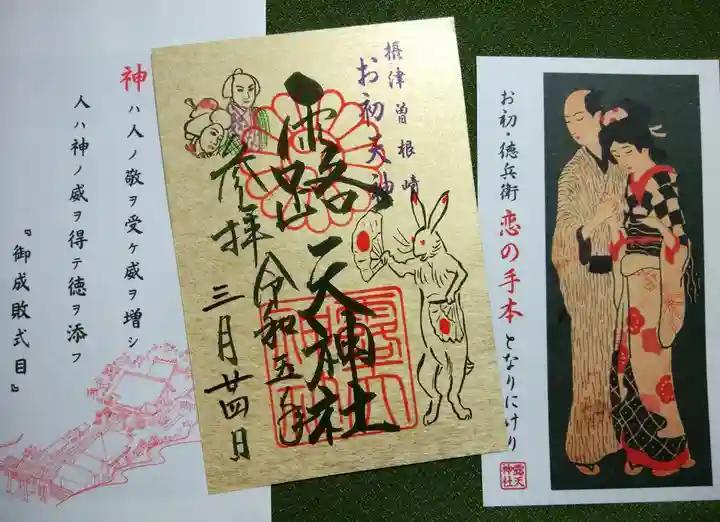 神ハ人ノ敬ヲ受ケ威ヲ増シ
人ハ神ノ威ヲ得テ徳ヲ添フ
『御成敗式目』
摂津曽根崎
お初天神
露
天神社
令和五年
三月廿四日
参拝
お初・徳兵衛
恋の手本
となりにけり
露天
神社